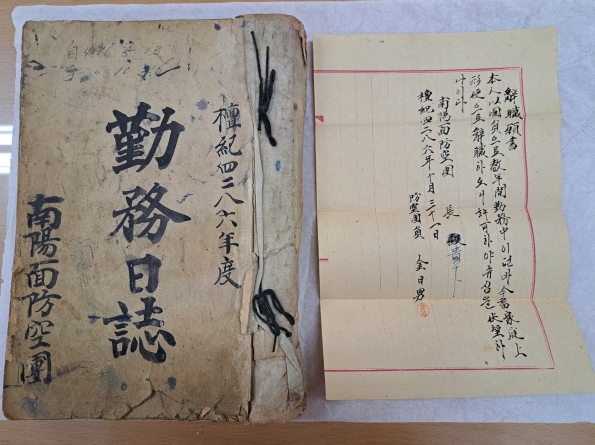 檀紀四二八六年度
勤務日誌
南陽面防空團
解職願書
本人以團員으로數年間勤務中이던바今番家庭上
形便으로解職하오니許可하야주심을伏望하
나이다
南陽面防空團 長 貴下
檀紀四二八六年十月三十一日
防空團員 金日男